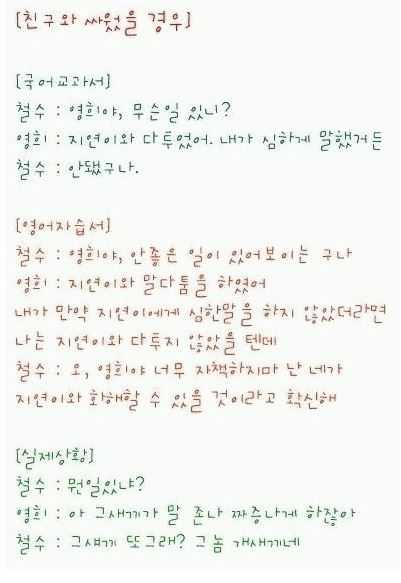 [친구와 싸웠을 경우]
[국어교과서]
철수 : 영희야, 무슨일 있니?
영희 : 지연이와 다투었어. 내가 심하게 말했거든
철수 : 안됐구나.
[영어자습서]
철수 : 영희야, 안좋은 일이 있어보이는 구나
영희 : 지연이와 말다툼을 하였어
내가 만약 지연이에게 심한말을 하지 않았더라면
나는 지연이와 다투지 않았을 텐데
철수 : 오, 영희야 너무 자책하지마 난 네가
지연이와 화해할 수 있을 것이라고 확신해
[실제상황]
철수 : 뭔일있냐?
영희 : 아 그새끼가 말 존나 짜증나게 하잖아
철수 : 그섀끼 또그래? 그놈 개새끼네